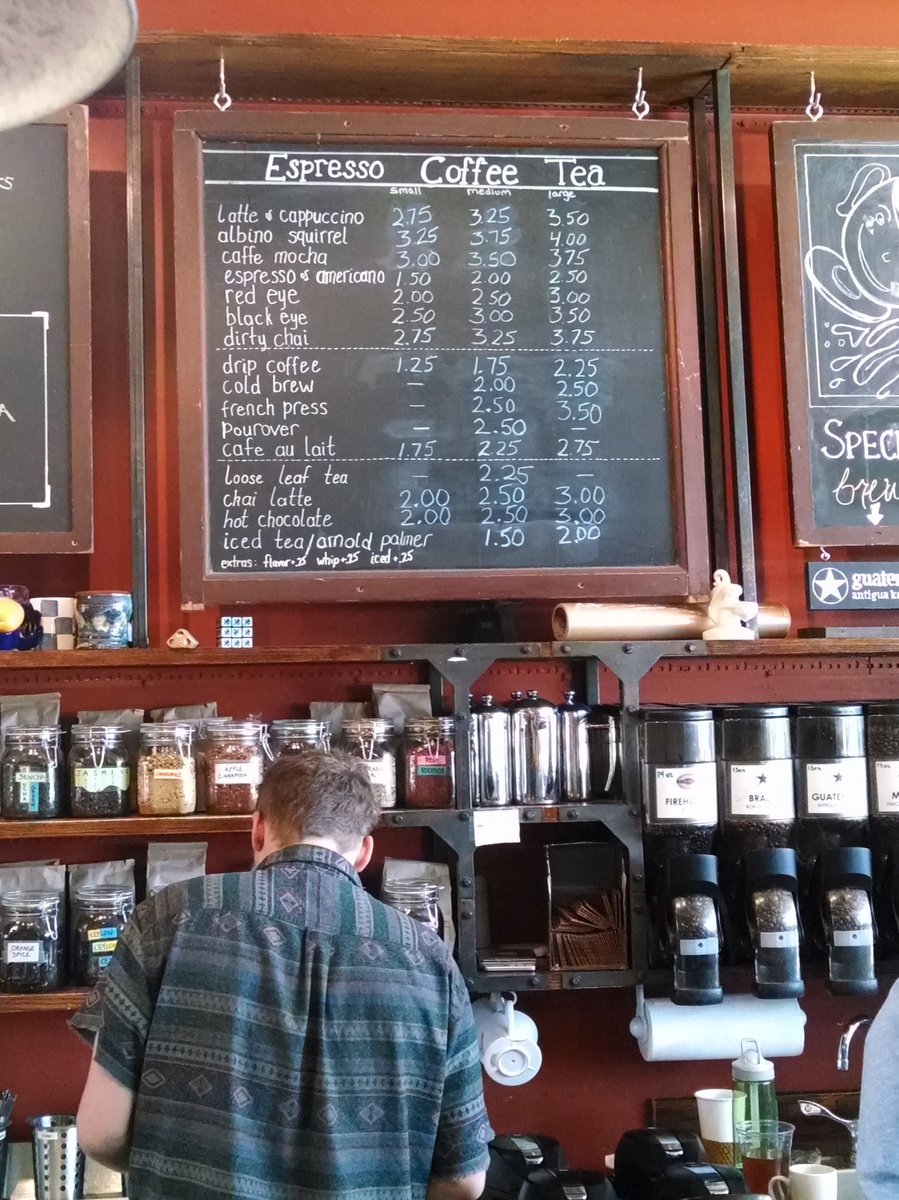 Espresso Coffee Tea
small medium large
latte & cappuccino 2.75 3.25 3.50
albino squirrel 3.25 3.75 4.00
caffe mocha 3.00 3.50 3.75
espresso & americano 1.50 2.00 2.50
red eye 2.00 2.50 3.00
black eye 2.50 3.00 3.50
dirty chai 2.75 3.25 3.75
drip coffee 1.25 1.75 2.25
cold brew — 2.00 2.50
french press — 2.50 3.50
pourover — 2.50 —
cafe au lait 1.75 2.25 2.75
loose leaf tea — 2.25 —
chai latte 2.00 2.50 3.00
hot chocolate 2.00 2.50 3.00
iced tea/arnold palmer 1.50 2.00
extras: flavor+.25 whip+.25 iced+.25
A
SPEC
brew
guate
antigua
SENCHA
JASMI
APPLE
CINNAMON
ROOIBOS
FIREH
BRA
GUATE
M
ORANGE
SPICE
CEYLON